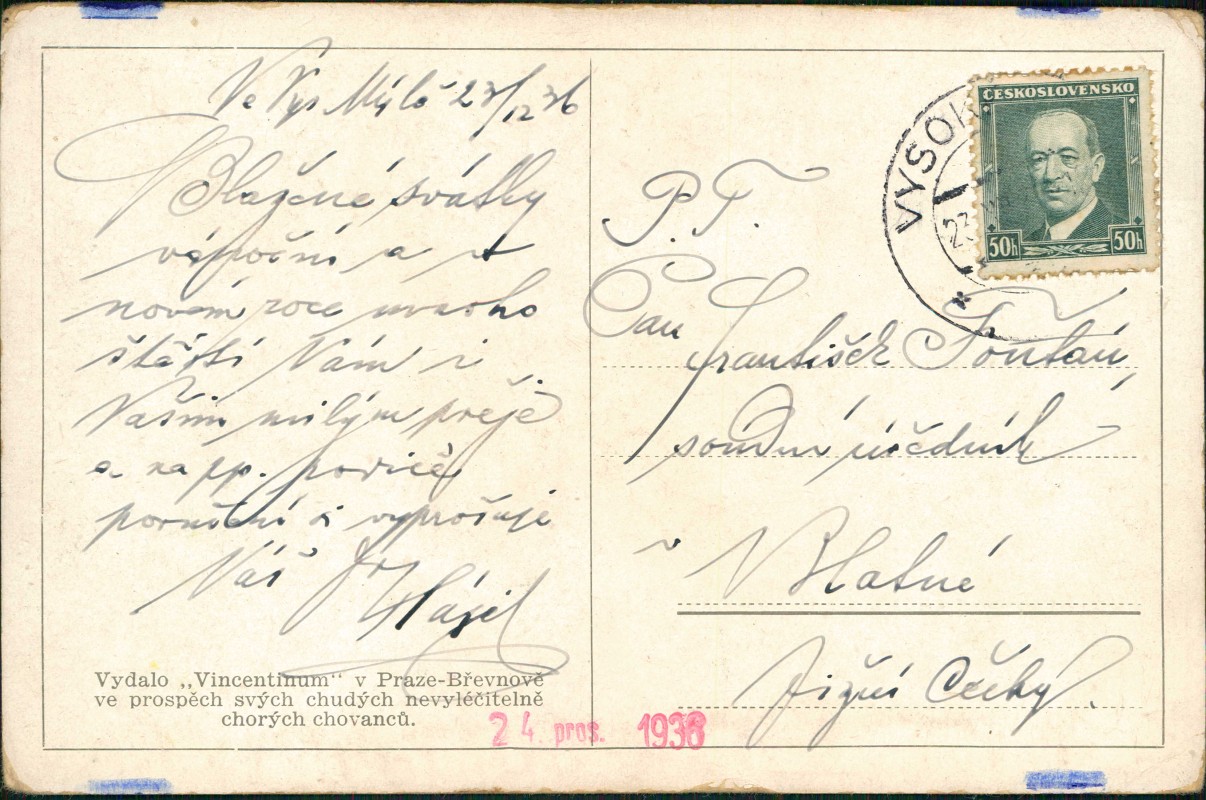 Ve Vys Mýtě 23/12 36
Blažené svátky
vánoční a v
novém roce mnoho
štěstí Vám i
Vašim milým přeje
a na pp.
porušení si vyprošuje
Váš
P. T.
Pan
František Šoután,
soudní úředník
v Blatné
Jižní Čechy.
ČESKOSLOVENSKO
50h 50h
VYSOK
23
Vydalo „Vincentinum" v Praze-Břevnově
ve prospěch svých chudých nevyléčitelně
chorých chovanců.
24 pros. 1936